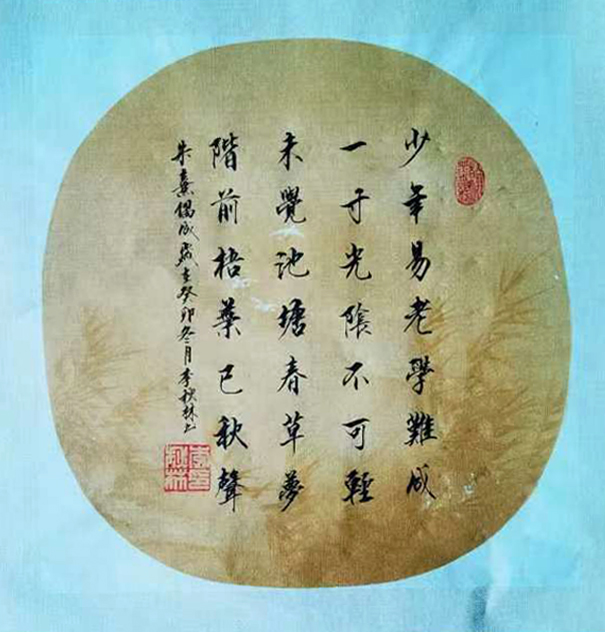 少年易老學難成
一寸光陰不可輕
未覺池塘春草夢
階前梧葉已秋聲
朱熹偶成歲在癸卯冬月李秋林书